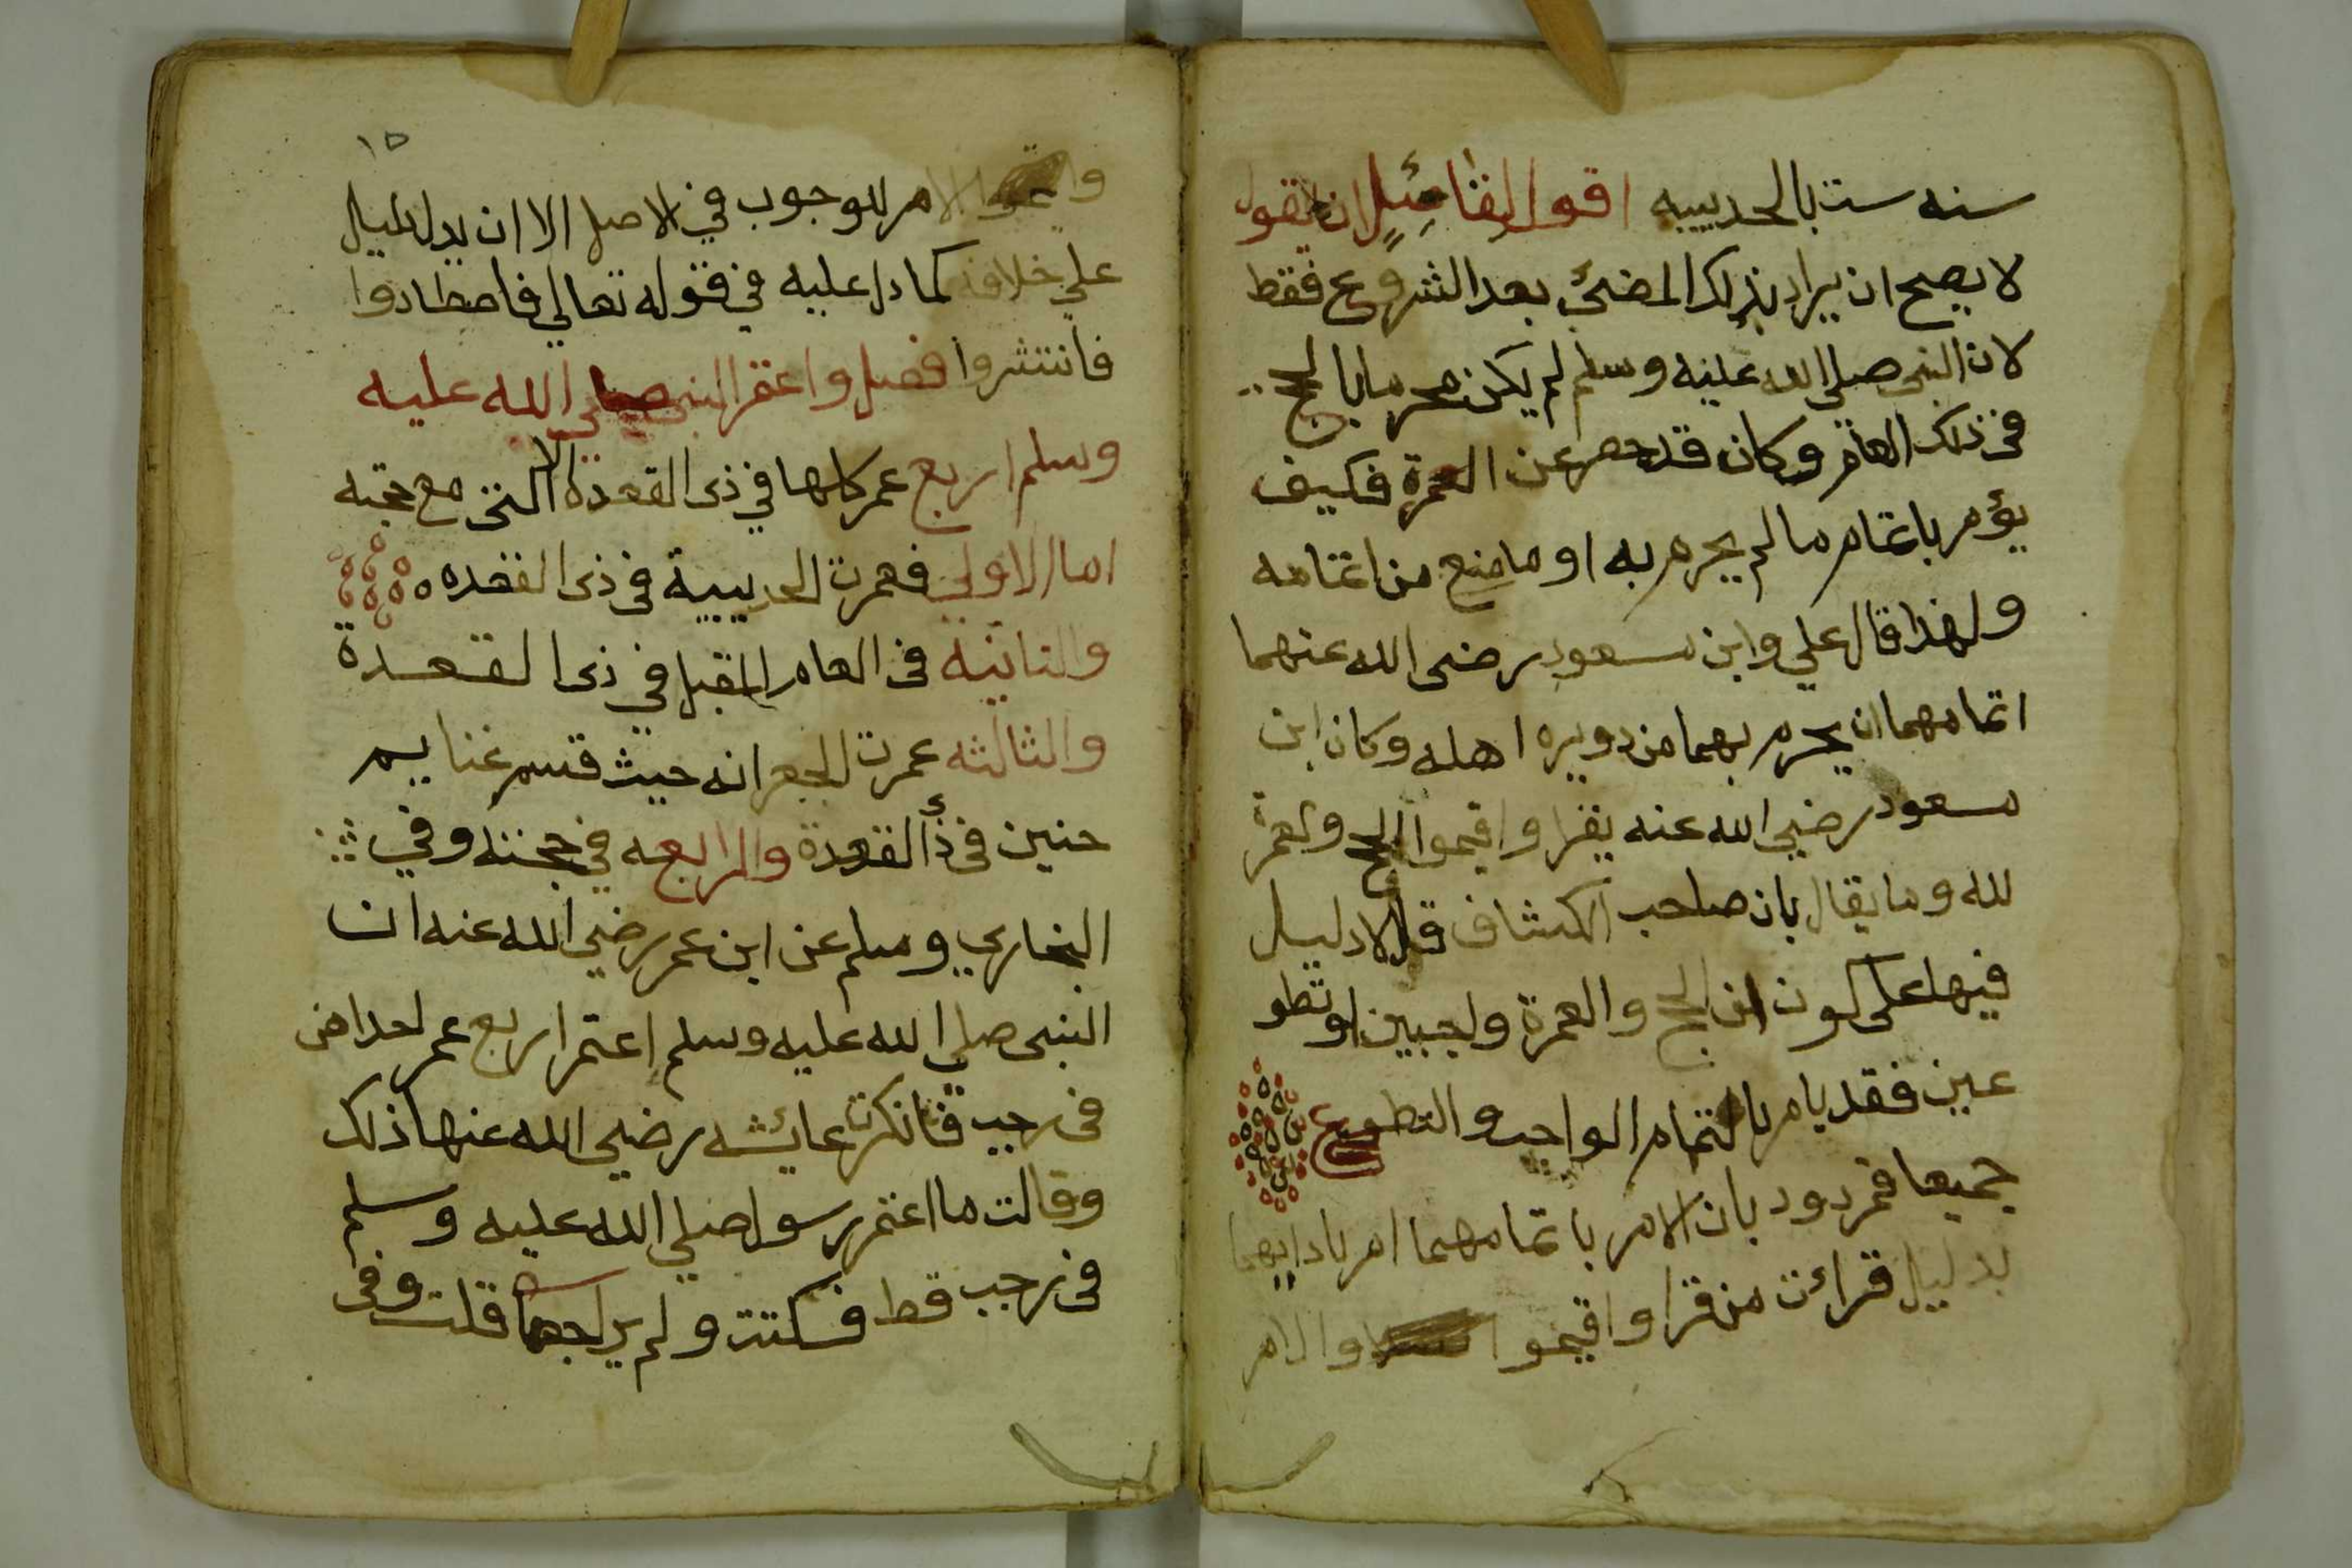 سنه ست بالحديبيه اقول لقائل ان يقول
لا يصح ان يراد بذلك المضئ بعد الشروع فقط
لان النبى صلى الله عليه وسلم لم يكن محرما بالحج
فى ذلك العام وكان قد حصر عن العمرة فكيف
يؤمر باتمام ما لم يحرم به او ما منع من اتمامه
ولهذا قال علي وابن مسعود رضى الله عنهما
اتمامهما ان يحرم بهما من دويره اهله وكان ابن
مسعود رضي الله عنه يقرا واقيموا الحج والعمرة
لله وما يقال بان صاحب الكشاف قال لا دليل
فيها على كون الحج والعمرة واجبين او تطو
عين فقد يامر بالتمام الواجب والتطوع
جميعا فمردود بان الامر باتمامهما امر بادايهما
بدليل قراءت من قرا واقيموا والامر
١٥
الامر للوجوب في الاصل الا ان يدل دليل
علي خلافه كما دل عليه في قوله تعالي فاصطادوا
فانتشروا فصل واعتمر النبى صلى الله عليه
وسلم اربع عمر كلها في ذى القعدة الا التى مع حجته
اما الاولي فعمرت الحديبية فى ذى القعده
والثانية فى العام المقبل في ذى القعدة
والثالثه عمرت الجعرانه حيث قسم غنايم
حنين فى ذى القعدة والرابعه في حجته وفي
البخاري ومسلم عن ابن عمر رضي الله عنه ان
النبى صلي الله عليه وسلم اعتمر اربع عمر احداهن
فى رجب فانكرت عائشه رضي الله عنها ذلك
وقالت ما اعتمر رسول صلي الله عليه وسلم
فى رجب قط فسكتت ولم يراجعها قلت وفى